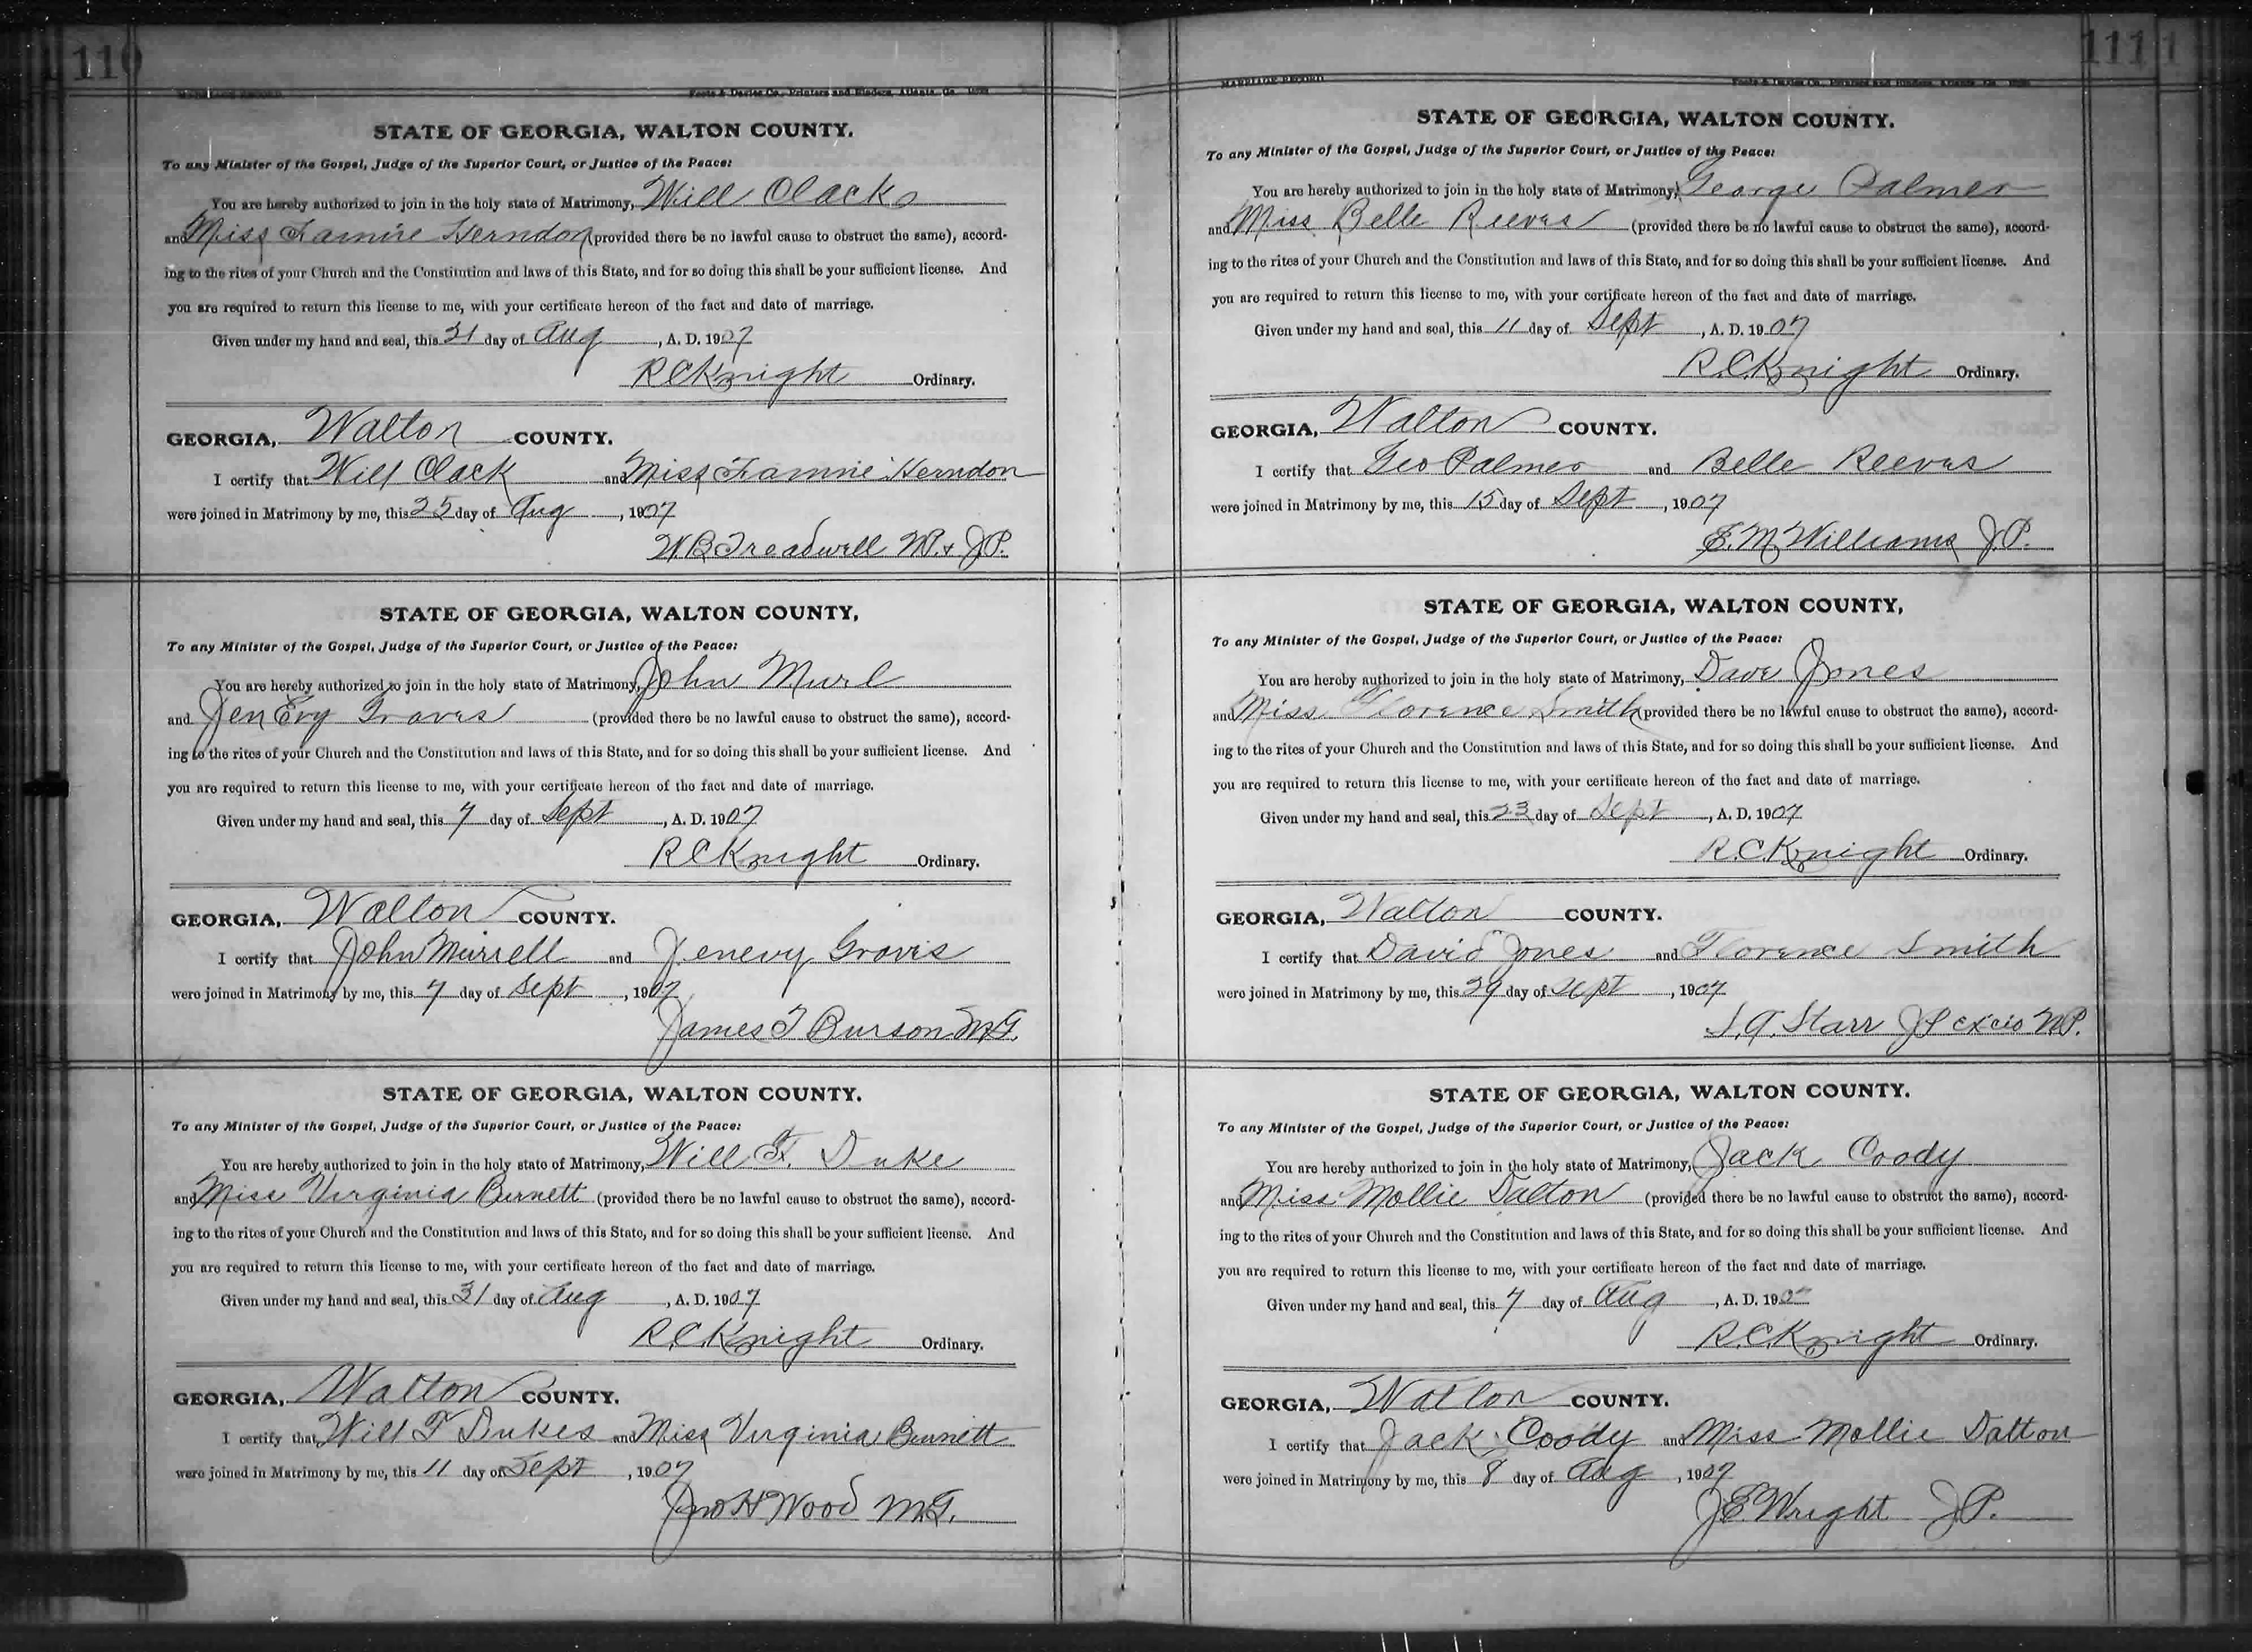 110
MARRIAGE RECORD
Foote & Davies Co., Printers and Binders, Atlanta, Ga.
STATE OF GEORGIA, WALTON COUNTY.
To any Minister of the Gospel, Judge of the Superior Court, or Justice of the Peace:
You are hereby authorized to join in the holy state of Matrimony, Will Clack
and Miss Fannie Herndon (provided there be no lawful cause to obstruct the same), accord-
ing to the rites of your Church and the Constitution and laws of this State, and for so doing this shall be your sufficient license. And
you are required to return this license to me, with your certificate hereon of the fact and date of marriage.
Given under my hand and seal, this 21 day of Aug, A. D. 1907
R C Knight Ordinary.
GEORGIA, Walton COUNTY.
I certify that Will Clack and Miss Fannie Herndon
were joined in Matrimony by me, this 25 day of Aug, 1907
W.B Treadwell NP. & JP.
STATE OF GEORGIA, WALTON COUNTY,
To any Minister of the Gospel, Judge of the Superior Court, or Justice of the Peace:
You are hereby authorized to join in the holy state of Matrimony, John Murl
and Jen Evy Graves (provided there be no lawful cause to obstruct the same), accord-
ing to the rites of your Church and the Constitution and laws of this State, and for so doing this shall be your sufficient license. And
you are required to return this license to me, with your certificate hereon of the fact and date of marriage.
Given under my hand and seal, this 7 day of Sept, A. D. 1907
R C Knight Ordinary.
GEORGIA, Walton COUNTY.
I certify that John Murrell and Jenevy Graves
were joined in Matrimony by me, this 7 day of Sept, 1907
James T Burson M.G.
STATE OF GEORGIA, WALTON COUNTY.
To any Minister of the Gospel, Judge of the Superior Court, or Justice of the Peace:
You are hereby authorized to join in the holy state of Matrimony, Will F. Duke
and Miss Virginia Burnett (provided there be no lawful cause to obstruct the same), accord-
ing to the rites of your Church and the Constitution and laws of this State, and for so doing this shall be your sufficient license. And
you are required to return this license to me, with your certificate hereon of the fact and date of marriage.
Given under my hand and seal, this 31 day of Aug, A. D. 1907
R.C. Knight Ordinary.
GEORGIA, Walton COUNTY.
I certify that Will F Dukes and Miss Virginia Burnett
were joined in Matrimony by me, this 11 day of Sept, 1907
Jno H Wood M.G.
111
MARRIAGE RECORD
STATE OF GEORGIA, WALTON COUNTY.
To any Minister of the Gospel, Judge of the Superior Court, or Justice of the Peace:
You are hereby authorized to join in the holy state of Matrimony, George Palmer
and Miss Belle Reeves (provided there be no lawful cause to obstruct the same), accord-
ing to the rites of your Church and the Constitution and laws of this State, and for so doing this shall be your sufficient license. And
you are required to return this license to me, with your certificate hereon of the fact and date of marriage.
Given under my hand and seal, this 11 day of Sept, A. D. 1907
R.C. Knight Ordinary.
GEORGIA, Walton COUNTY.
I certify that Geo Palmer and Belle Reeves
were joined in Matrimony by me, this 15 day of Sept, 1907
E.M. Williams J.P.
STATE OF GEORGIA, WALTON COUNTY,
To any Minister of the Gospel, Judge of the Superior Court, or Justice of the Peace:
You are hereby authorized to join in the holy state of Matrimony, Dave Jones
and Miss Florence Smith (provided there be no lawful cause to obstruct the same), accord-
ing to the rites of your Church and the Constitution and laws of this State, and for so doing this shall be your sufficient license. And
you are required to return this license to me, with your certificate hereon of the fact and date of marriage.
Given under my hand and seal, this 23 day of Sept, A. D. 1907
R.C. Knight Ordinary.
GEORGIA, Walton COUNTY.
I certify that David Jones and Florence Smith
were joined in Matrimony by me, this 29 day of Sept, 1907
Starr JP NP.
STATE OF GEORGIA, WALTON COUNTY.
To any Minister of the Gospel, Judge of the Superior Court, or Justice of the Peace:
You are hereby authorized to join in the holy state of Matrimony, Jack Coody
and Miss Mollie Dalton (provided there be no lawful cause to obstruct the same), accord-
ing to the rites of your Church and the Constitution and laws of this State, and for so doing this shall be your sufficient license. And
you are required to return this license to me, with your certificate hereon of the fact and date of marriage.
Given under my hand and seal, this 7 day of Aug, A. D. 1907
R.C. Knight Ordinary.
GEORGIA, Walton COUNTY.
I certify that Jack Coody and Miss Mollie Dalton
were joined in Matrimony by me, this 8 day of Aug, 1907
J.E. Wright J.P.